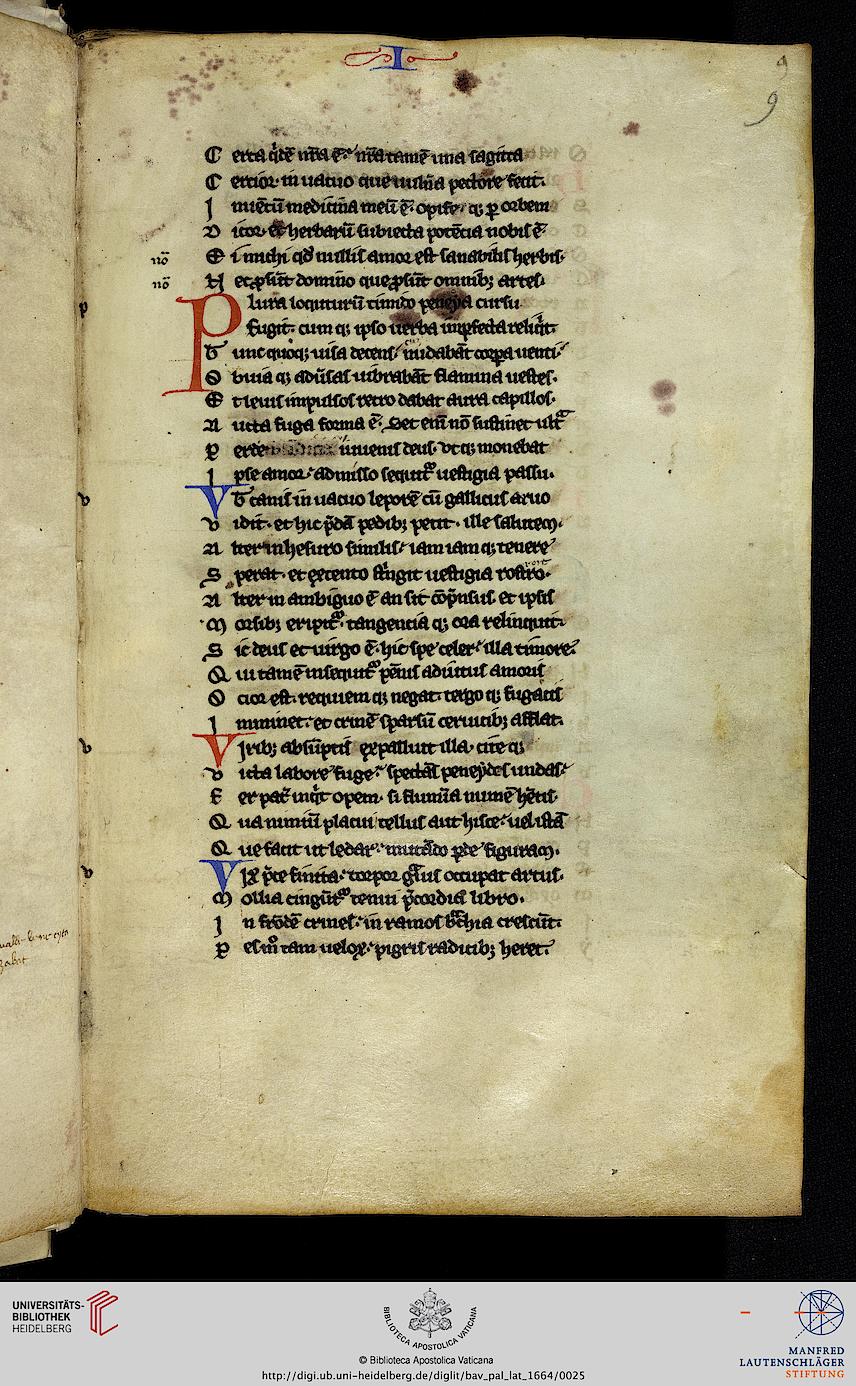 I
9
9
C erta q̇dē nr̄a ē· nr̄a tamē una sagitta
C ertior· in uacuo que uulnͣa pectore fecit·
I nuētū medicina meū ē· opifeꝛ qꝫ ꝑ orbem
D icor· et herbarū subiecta potēcia nobis ē·
nō E i michi qd̓ nullis amor est sanabilis herbis·
nō N ec ꝓsūt domino que ꝓsūt omnibꝫ artes·
p P lura loquiturū timido peneya cursu
Fugit· cum qꝫ ipso uerba imꝑfecta reliq̇t·
T unc quoqꝫ uisa decens· nudabāt corꝑa uenti·
O buia qꝫ adūsas uibrabāt flamina uestes·
E t leuis impulsos retro dabat aura capillos·
A ucta fuga forma ē· Set em̄ nō sustinet ultͣ
P erde iuuenis deus· vt qꝫ monebat
I pse amor· admisso sequitᷣ uestigia passu·
v Vt̄ canis in uacuo leporē cū gallicus aruo
V idit· et hic p̄dā pedibꝫ petit· ille salutem·
A lter inhesuro similis· iam iam qꝫ tenere
S perat· et extento stͥngit uestigia rostro·
A lter in ambiguo ē an sit cōp̄nsus et ipsis
M orsibꝫ eripitᷣ· tangencia qꝫ ora relinquit·
S ic deus et uirgo ē· hic spe celer· illa timore·
Q ui tamē insequitᷣ pēnis adiutus amoris
O cior est· requiem qꝫ negat· tergo qꝫ fugacis
I mminet· et crinē sparsū ceruicibꝫ afflat·
v Viribꝫ absūptis expalluit illa· cite qꝫ
V icta labore fuge· spectās peneydes undas·
F er pat̄ inq̇t opem· si flumīa numē hētis·
Q ua nimiū placui tellus aut hisce· uel istā
Q ue facit ut ledar· mutādo ꝑde figuram·
v Vix p̄ce finita· torpor gͣuis occupat artus·
M ollia cingūtᷣ tenui p̄cordia libro·
I n frōdē crines· in ramos bͣchia crescūt·
P es mͦ tam uelox· pigris radicibꝫ heret·
UNIVERSITÄTS-
BIBLIOTHEK
HEIDELBERG
BIBLIOTHECA APOSTOLICA VATICANA
© Biblioteca Apostolica Vaticana
http://digi.ub.uni-heidelberg.de/diglit/bav_pal_lat_1664/0025
MANFRED
LAUTENSCHLÄGER
STIFTUNG